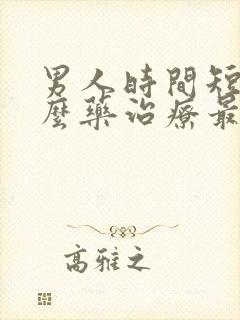 男人時間短
麼藥治療最
高雅之